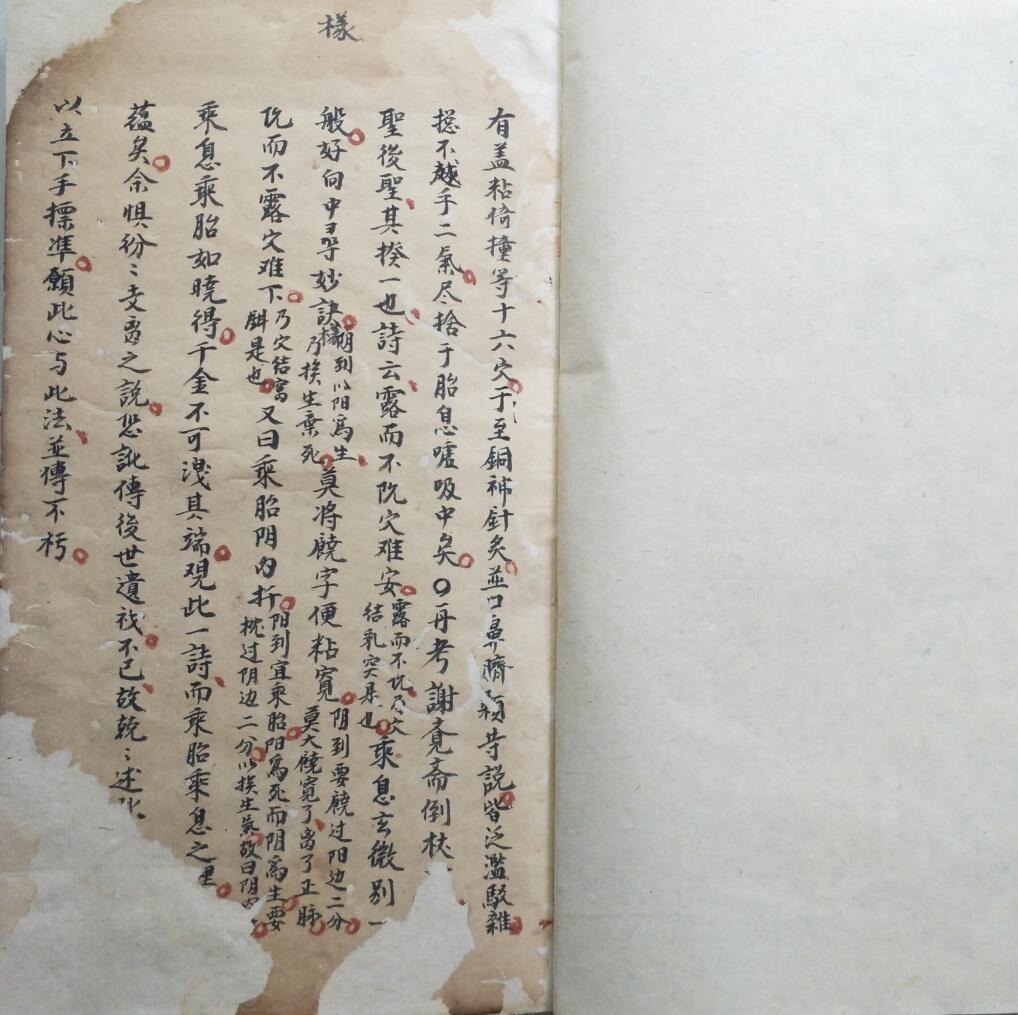 樣
有蓋粘倚撞等十六穴于至銅補針灸並口鼻臍頦等說皆泛濫駁雜
揔不越乎二氣尽捨于胎息噓吸中矣〇再考謝覔斎倒杖
聖後聖其揆一也詩云露而不阬穴难安露而不阬乃穴結乳突是也乘息玄微別一
般好向中寻妙訣陽到以阳爲生乃挨生棄死莫将饒字便粘寬阴到要饒过阳边二分莫大饒寛了离了正脉
阬而不露穴难下乃穴結窩鉗是也又曰乘胎阴内扦阳到宜乘胎阳爲死而阴爲生要枕过阴边二分以挨生氣故曰阴内
乘息乘胎如曉得千金不可洩其端观此一詩而乘胎乘息之
蘊矣余惧紛〻支离之說恐訛傳後世遺祸不已故兢〻述此
以立下手摽準願此心与此法並傳不朽